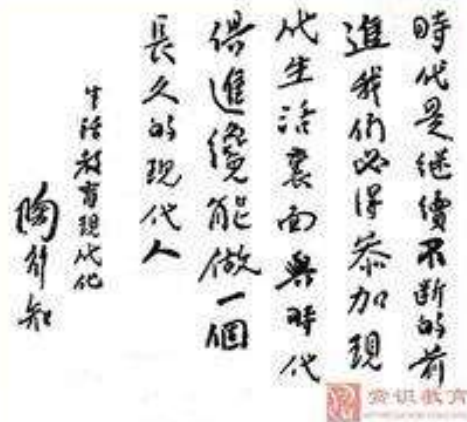 時代是继續不断的前
進我们必得参加現
代生活裏面與時代
俱進纔能做一個
長久的現代人
生活教育現代化
陶行知
赏识教育